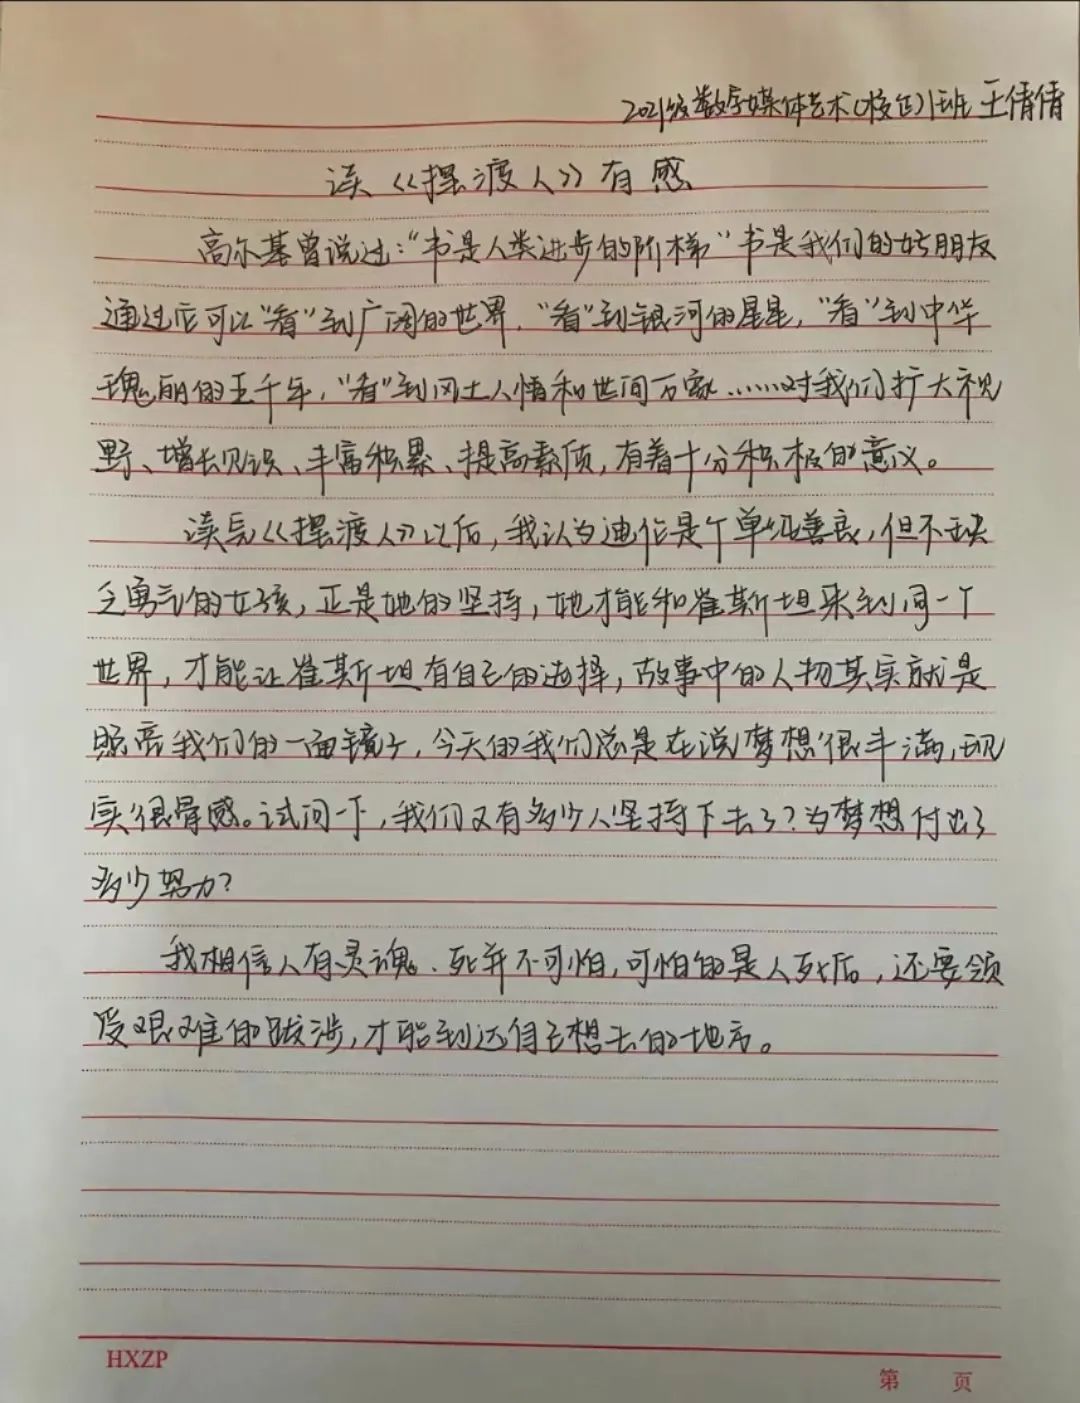 2021级数字媒体艺术(校企)1班 王倩倩
读《摆渡人》有感
高尔基曾说过:“书是人类进步的阶梯”书是我们的好朋友
通过它可以“看”到广阔的世界,“看”到银河的星星,“看”到中华
瑰丽的五千年,“看”到风土人情和世间万象……对我们扩大视
野、增长见识、丰富积累、提高素质,有着十分积极的意义。
读完《摆渡人》以后,我认为迪伦是个单纯善良,但不缺
乏勇气的女孩,正是她的坚持,她才能和崔斯坦来到同一个
世界,才能让崔斯坦有自己的选择,故事中的人物其实就是
照亮我们的一面镜子,今天的我们总是在说梦想很丰满,现
实很骨感。试问一下,我们又有多少人坚持下去了?为梦想付出了
多少努力?
我相信人有灵魂、死并不可怕,可怕的是人死后,还要领
受艰难的跋涉,才能到达自己想去的地方。
HXZP
第 页